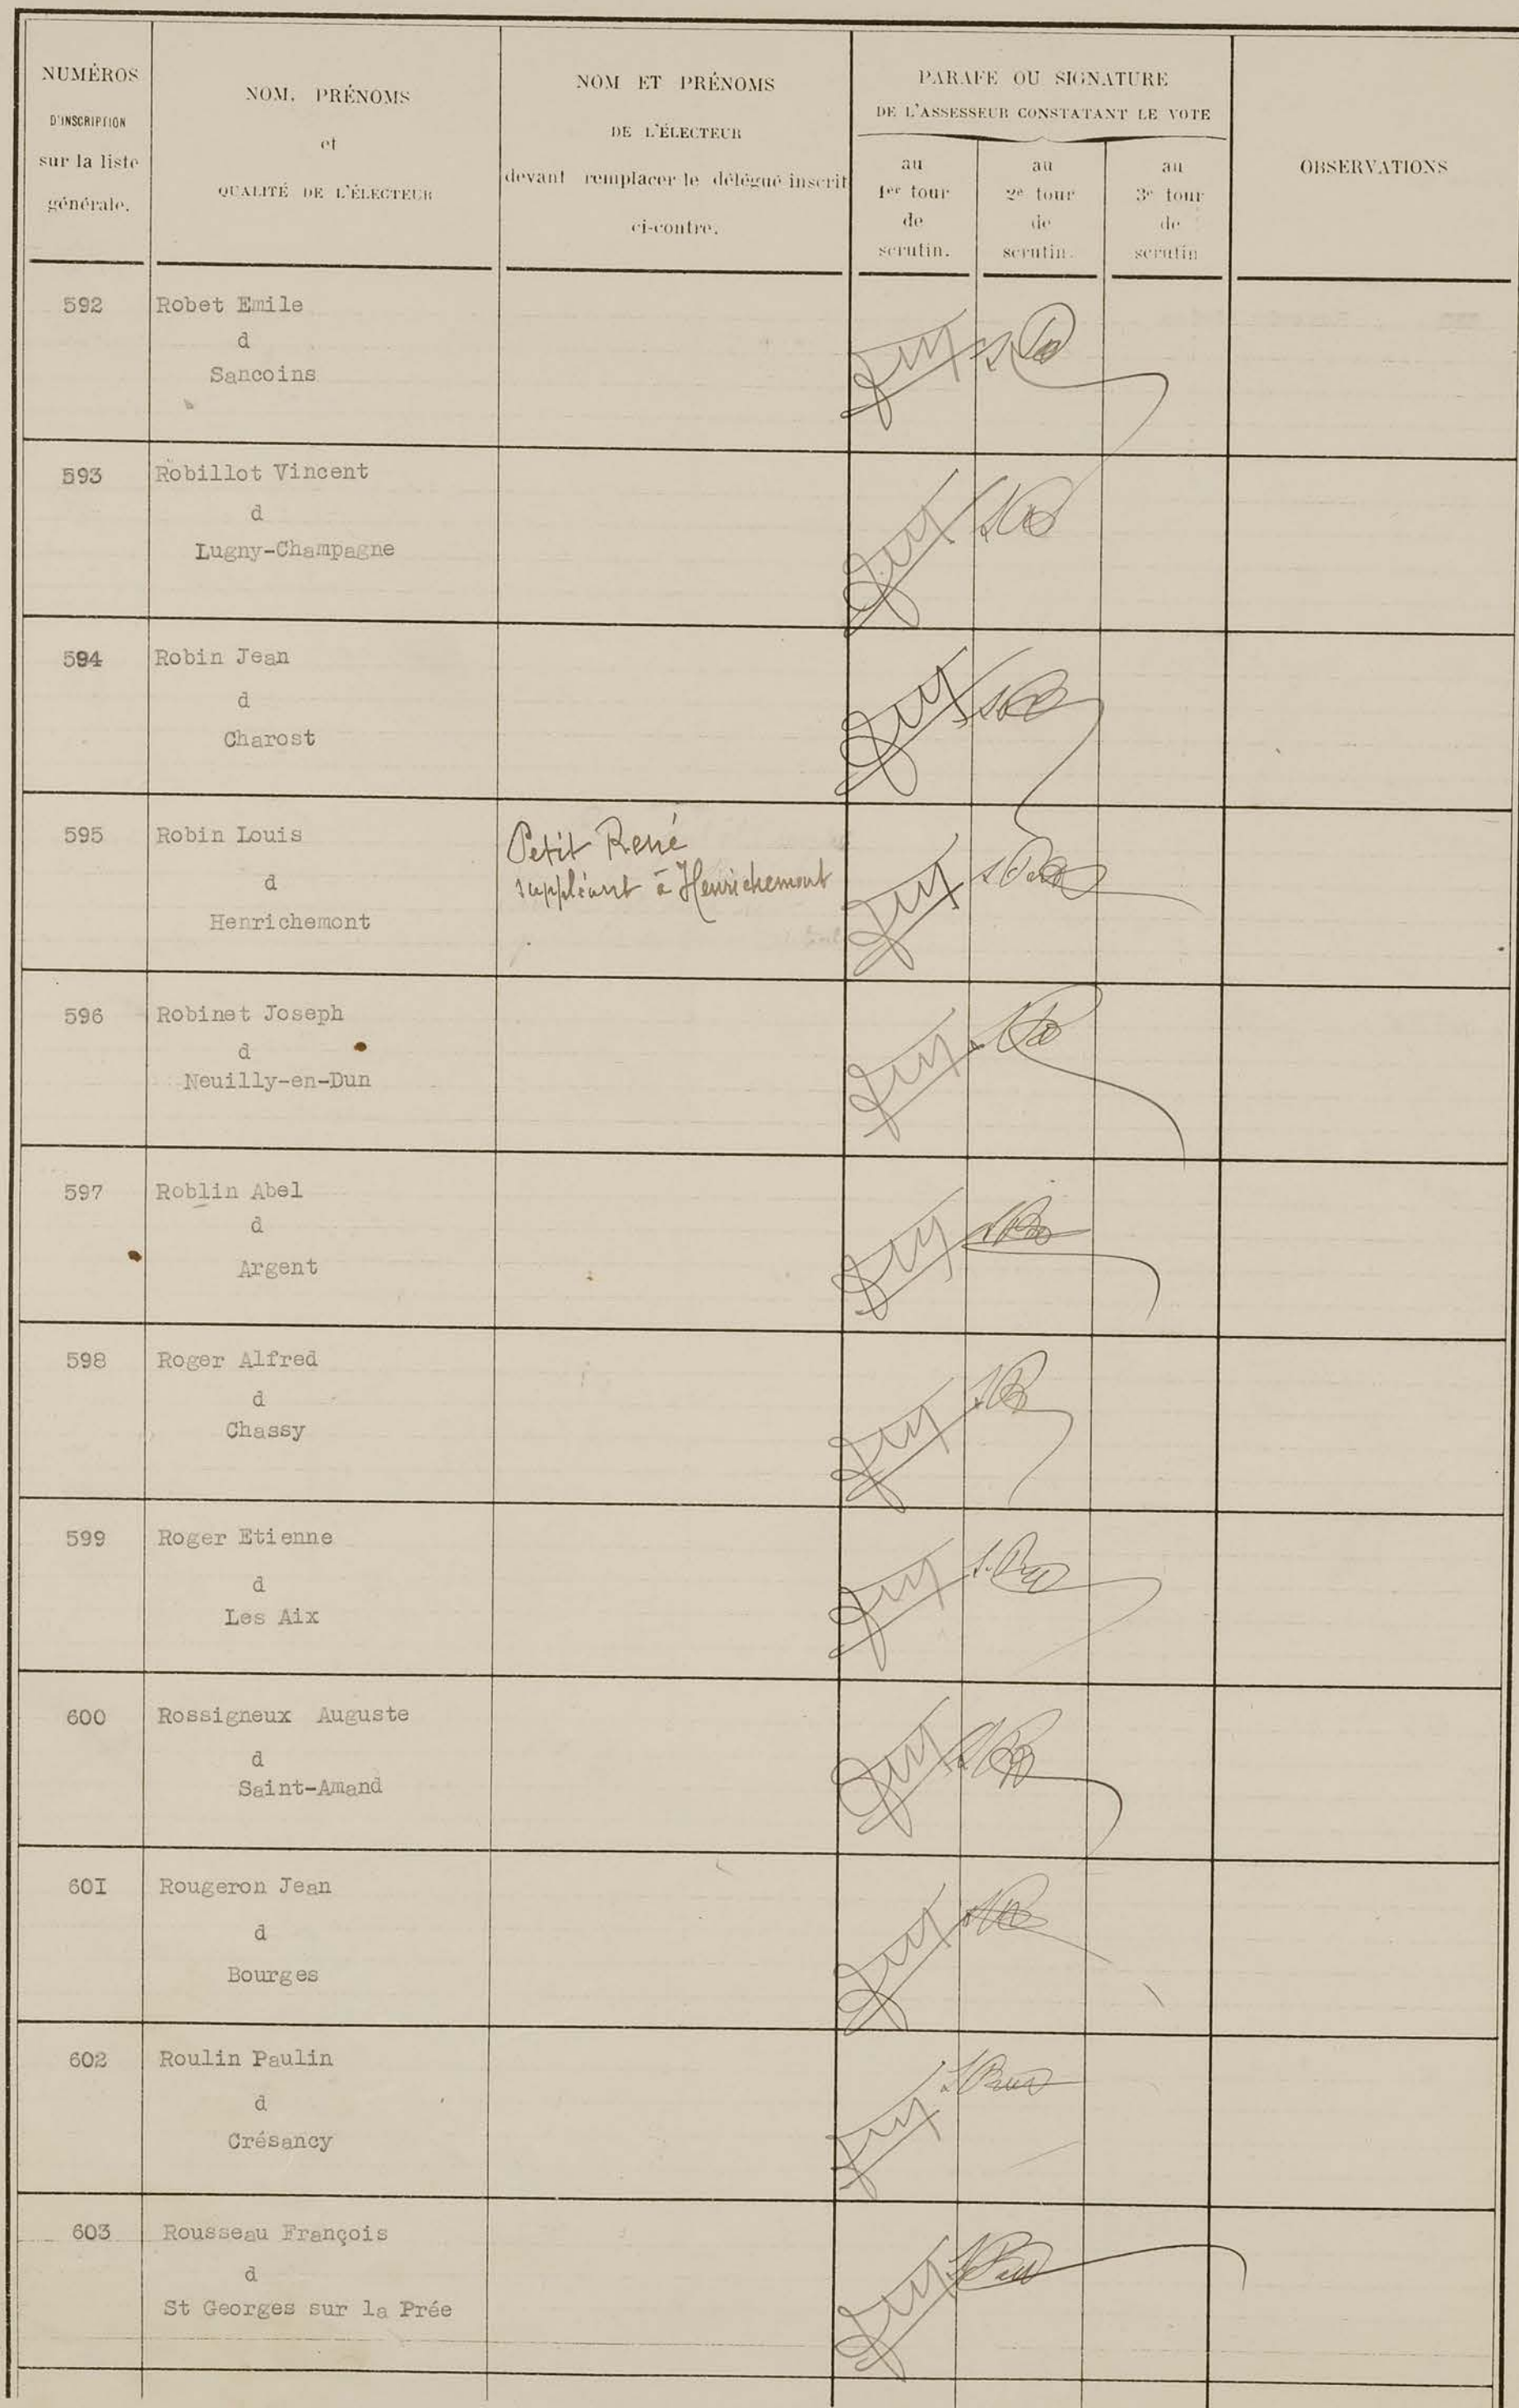 NUMÉROS
D'INSCRIPTION
sur la liste
générale.
NOM, PRÉNOMS
et
QUALITÉ DE L'ÉLECTEUR
NOM ET PRÉNOMS
DE L'ÉLECTEUR
devant remplacer le délégué inscrit
ci-contre.
PARAFE OU SIGNATURE
DE L'ASSESSEUR CONSTATANT LE VOTE
au
1er tour
de
scrutin.
au
2e tour
de
scrutin.
au
3e tour
de
scrutin
OBSERVATIONS
592 Robet Emile
d
Sancoins
593 Robillot Vincent
d
Lugny-Champagne
594 Robin Jean
d
Charost
595 Robin Louis
d
Henrichemont
Petit René
suppléant à Henrichemont
596 Robinet Joseph
d
Neuilly-en-Dun
597 Roblin Abel
d
Argent
598 Roger Alfred
d
Chassy
599 Roger Etienne
d
Les Aix
600 Rossigneux Auguste
d
Saint-Amand
60I Rougeron Jean
d
Bourges
602 Roulin Paulin
d
Crésancy
603 Rousseau François
d
St Georges sur la Prée